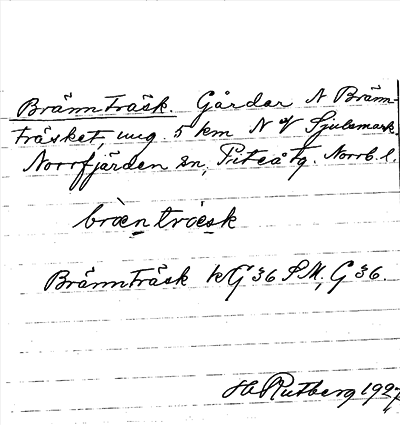 Brännträsk. Gårdar N Bränn-
träsket, ung. 5 km N of Sjulsmark,
Norrfjärden sn, Piteå tg. Norrb. l.
bràentràesk
Brännträsk kG 36 SM, G 36.
H Rutberg 1927